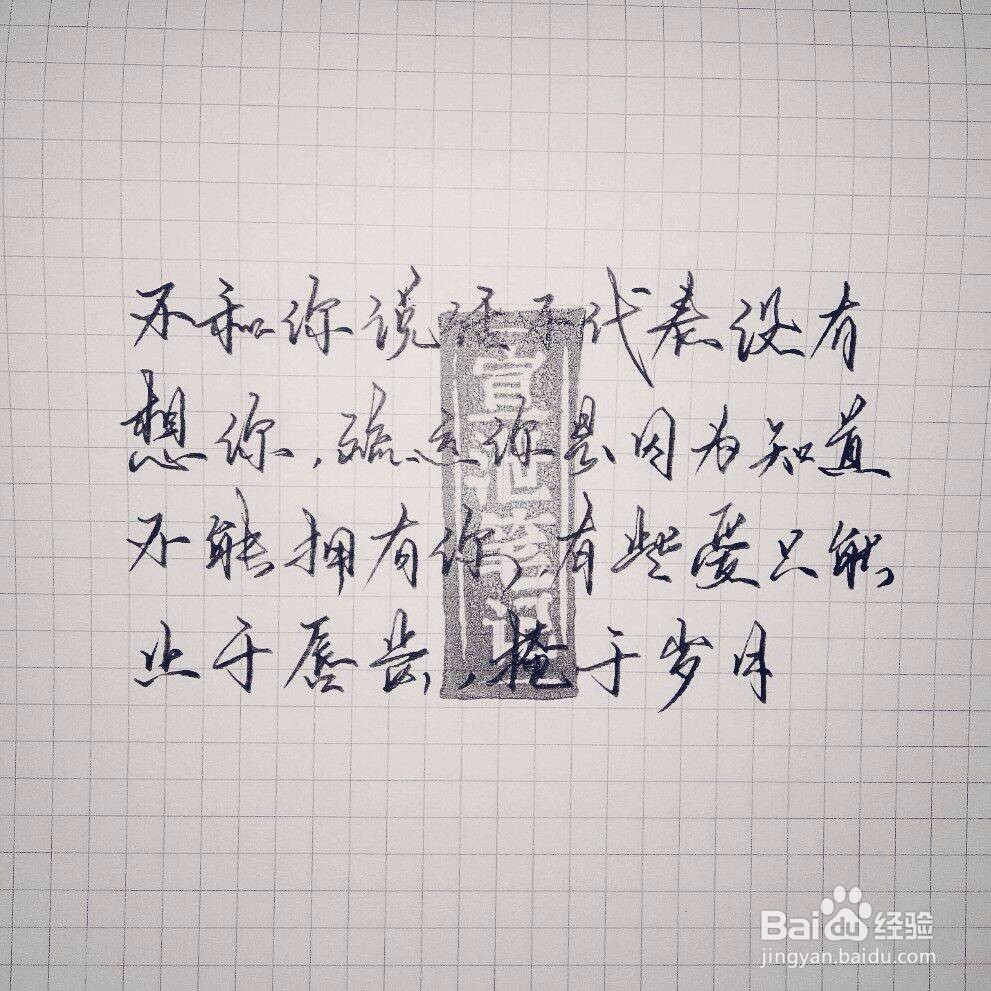 不和你说话不代表没有
想你,疏远你是因为知道
不能拥有你,有些爱只能
止于唇齿,掩于岁月
宣泄笔记
Baidu经验
jingyan.baidu.com